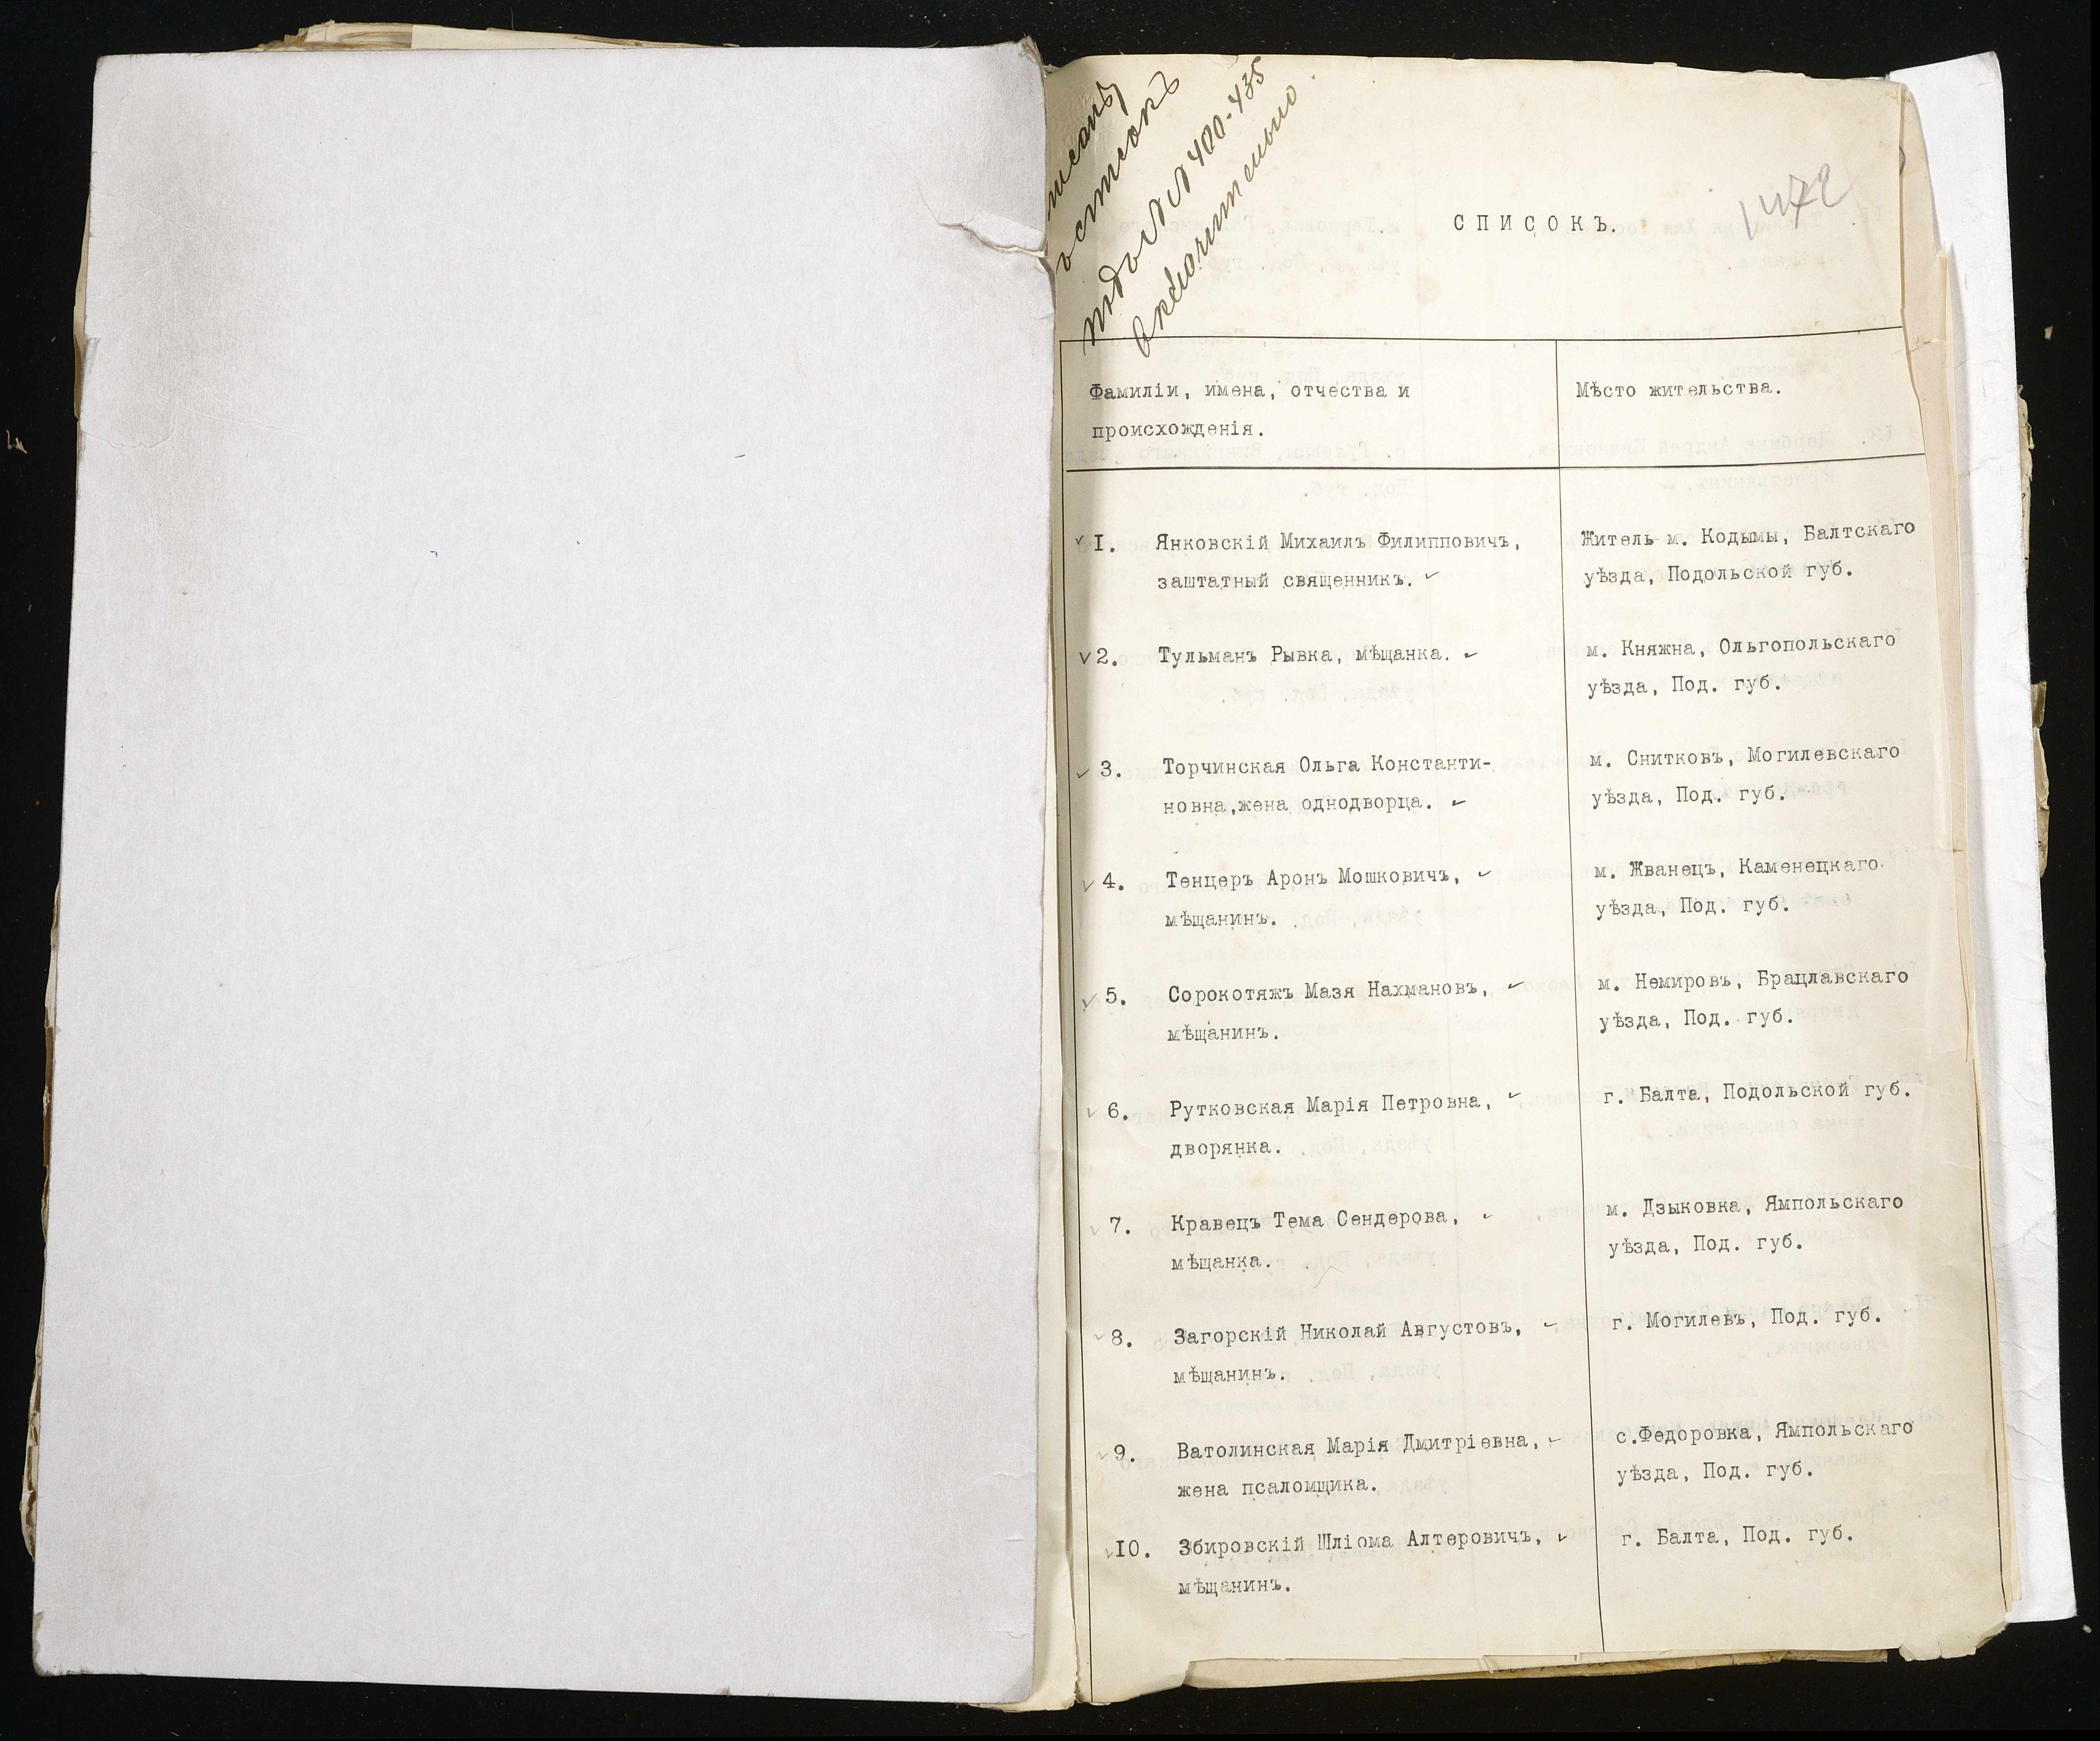 подъ №№ 400-435
включительно.
1472
СПИСОКЪ.
Фамиліи, имена, отчества и
происхожденія.
Мѣсто жительства.
1. Янковскій Михаилъ Филипповичъ,
заштатный священникъ.
Житель м. Кодымы, Балтскаго
уѣзда, Подольской губ.
2. Тульманъ Рывка, мѣщанка.
м. Княжна, Ольгопольскаго
уѣзда, Под. губ.
3. Торчинская Ольга Константи-
новна,жена однодворца.
м. Снитковъ, Могилевскаго
уѣзда, Под. губ.
4. Тенцеръ Аронъ Мошковичъ,
мѣщанинъ.
м. Жванецъ, Каменецкаго
уѣзда, Под. губ.
5. Сорокотяжъ Мазя Нахмановъ,
мѣщанинъ.
м. Немировъ, Брацлавскаго
уѣзда, Под. губ.
6. Рутковская Марія Петровна,
дворянка.
г. Балта, Подольской губ.
7. Кравецъ Тема Сендерова,
мѣщанка.
м. Дзыковка, Ямпольскаго
уѣзда, Под. губ.
8. Загорскій Николай Августовъ,
мѣщанинъ.
г. Могилевъ, Под. губ.
9. Ватолинская Марія Дмитріевна,
жена псаломщика.
с.Федоровка, Ямпольскаго
уѣзда, Под. губ.
10. Збировскій Шліома Алтеровичъ,
мѣщанинъ.
г. Балта, Под. губ.